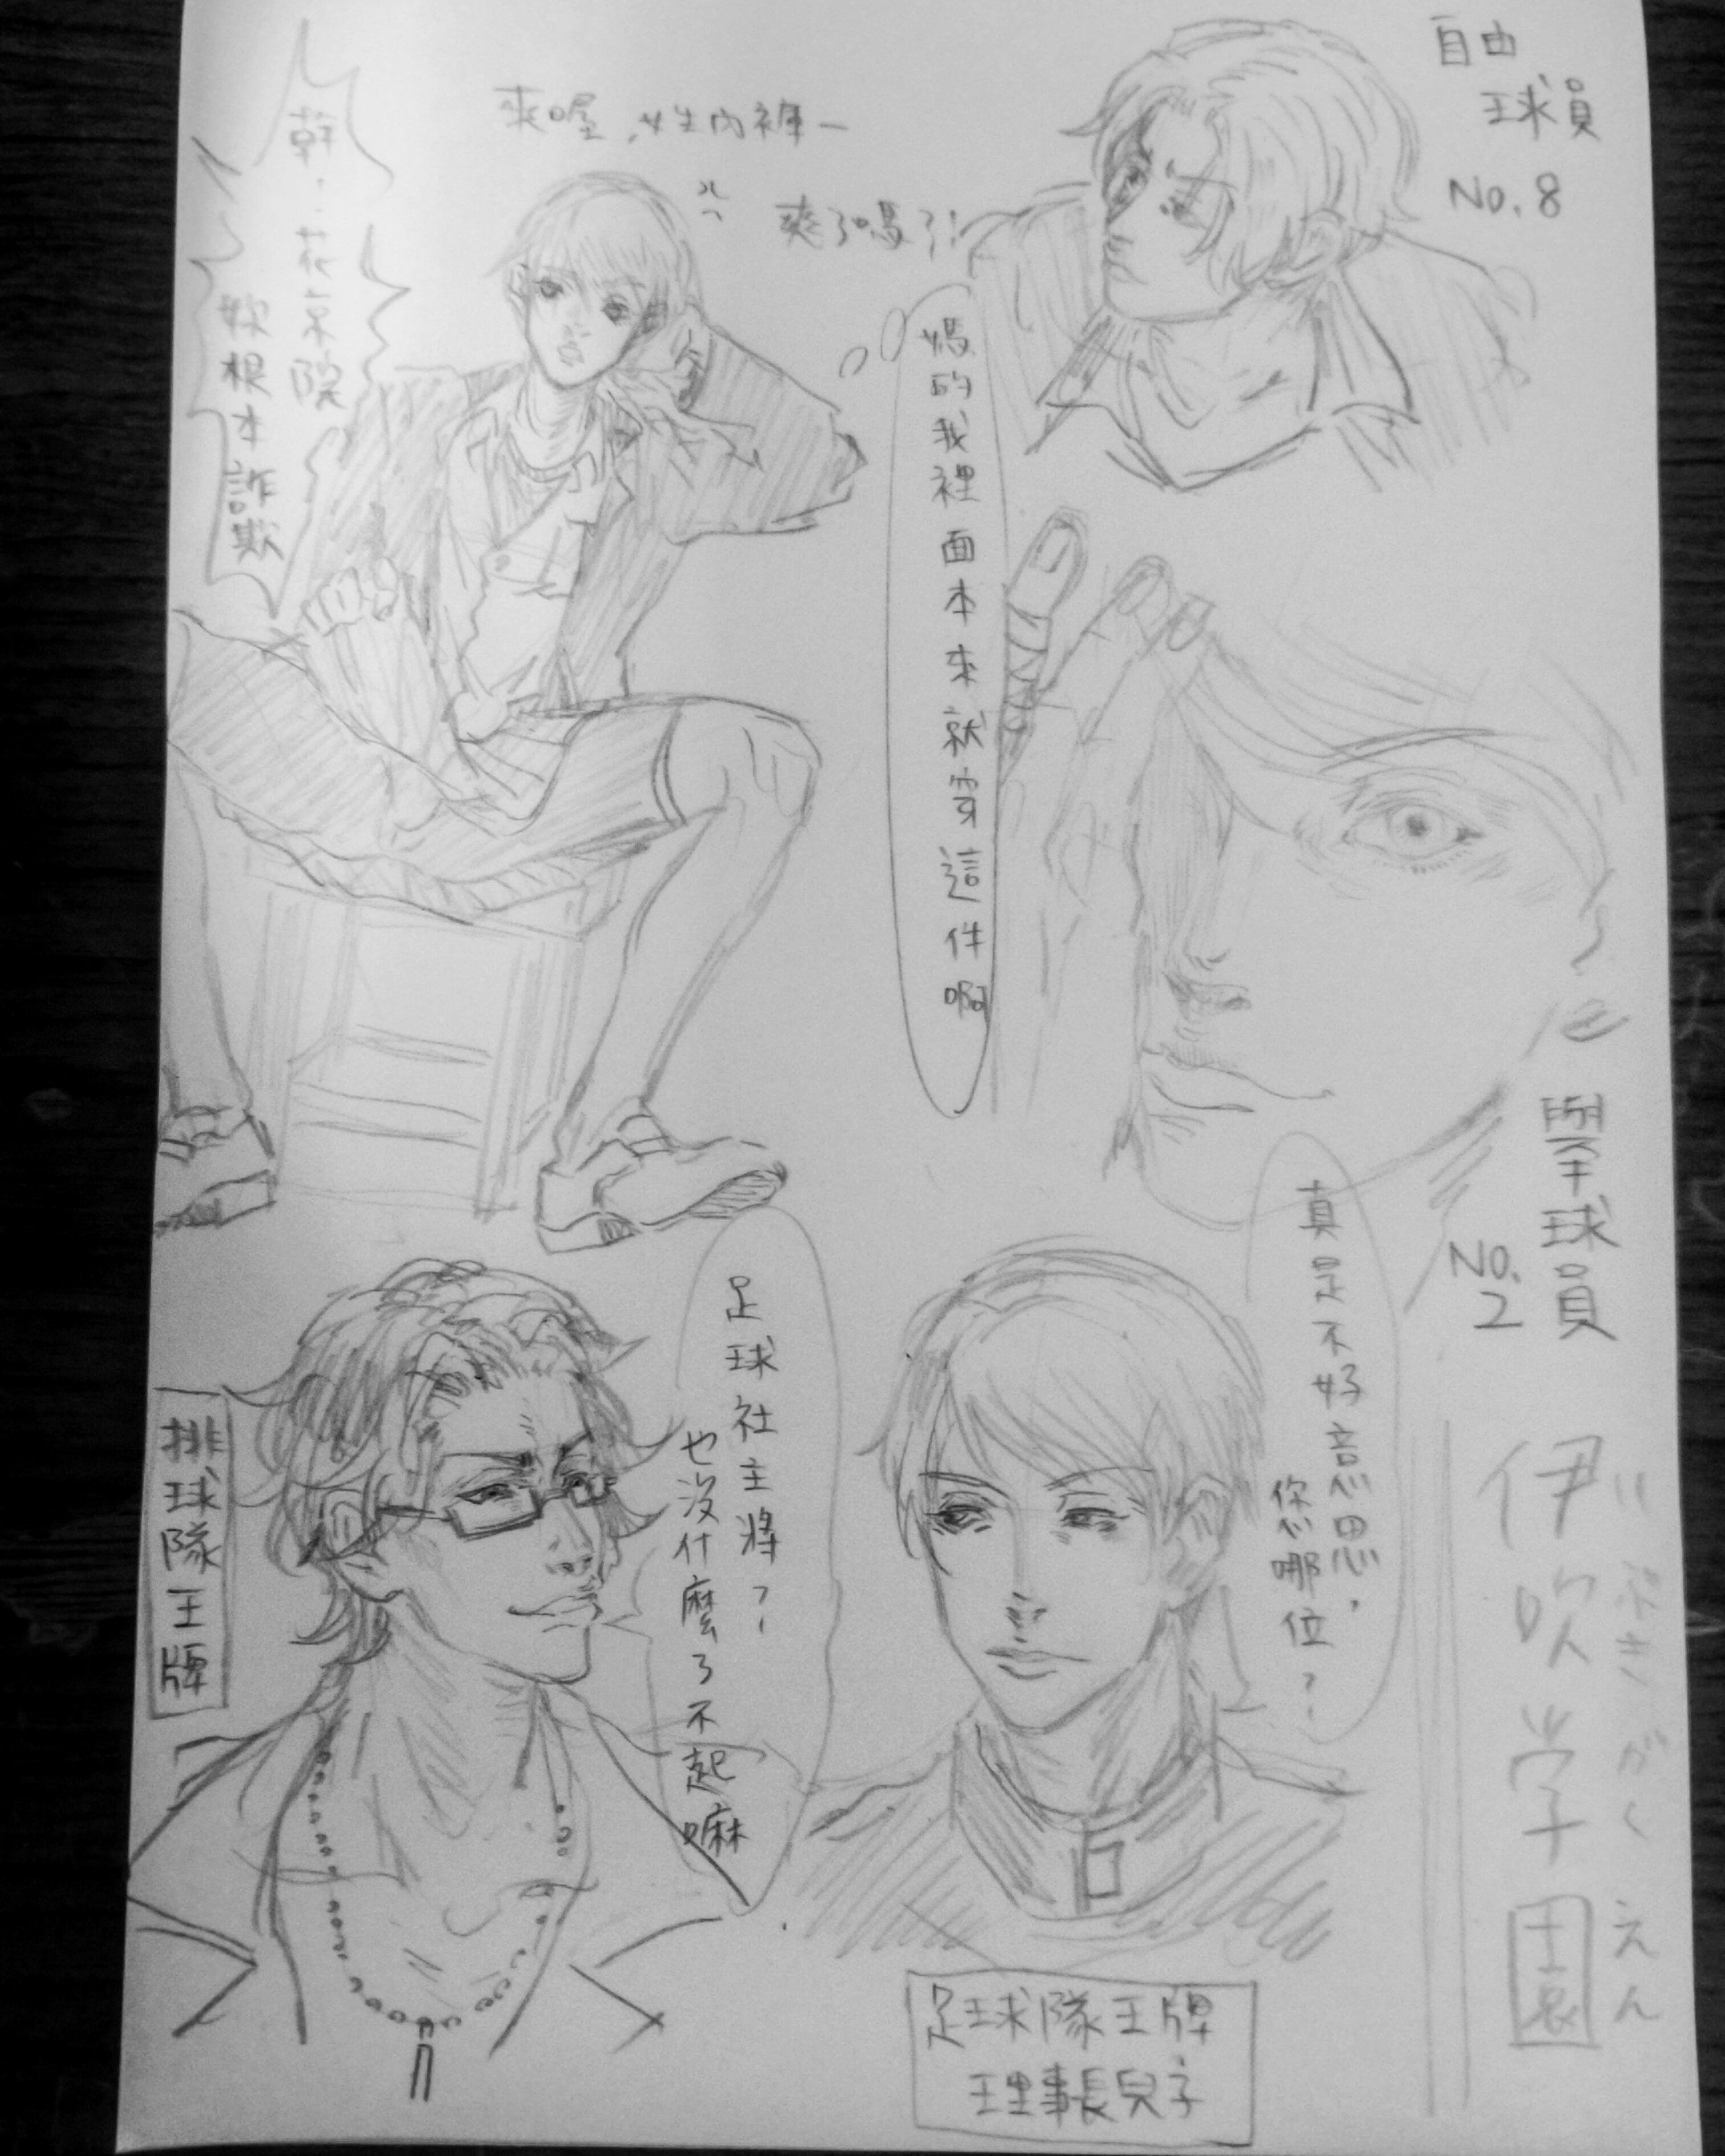 自由
球員
No.8
爽喔，女生內褲一
爽了嗎？！
幹，花京院
妳根本詐欺
媽的我裡面本來就穿這件啊
舉球員
No.2
真是不好意思，
您哪位？
足球社主將？
也沒什麼了不起嘛
排球隊王牌
足球隊王牌
理事長兒子
伊吹学園
いぶきがくえん